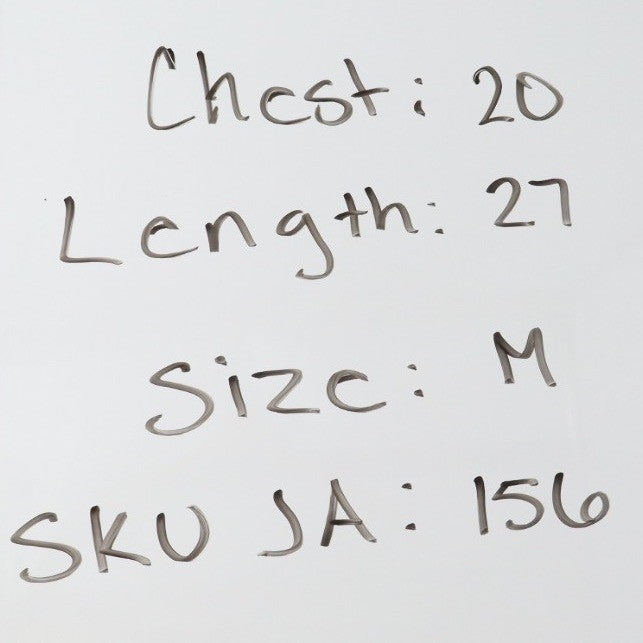 Chest: 20
Length: 27
Size: M
SKU JA: 156